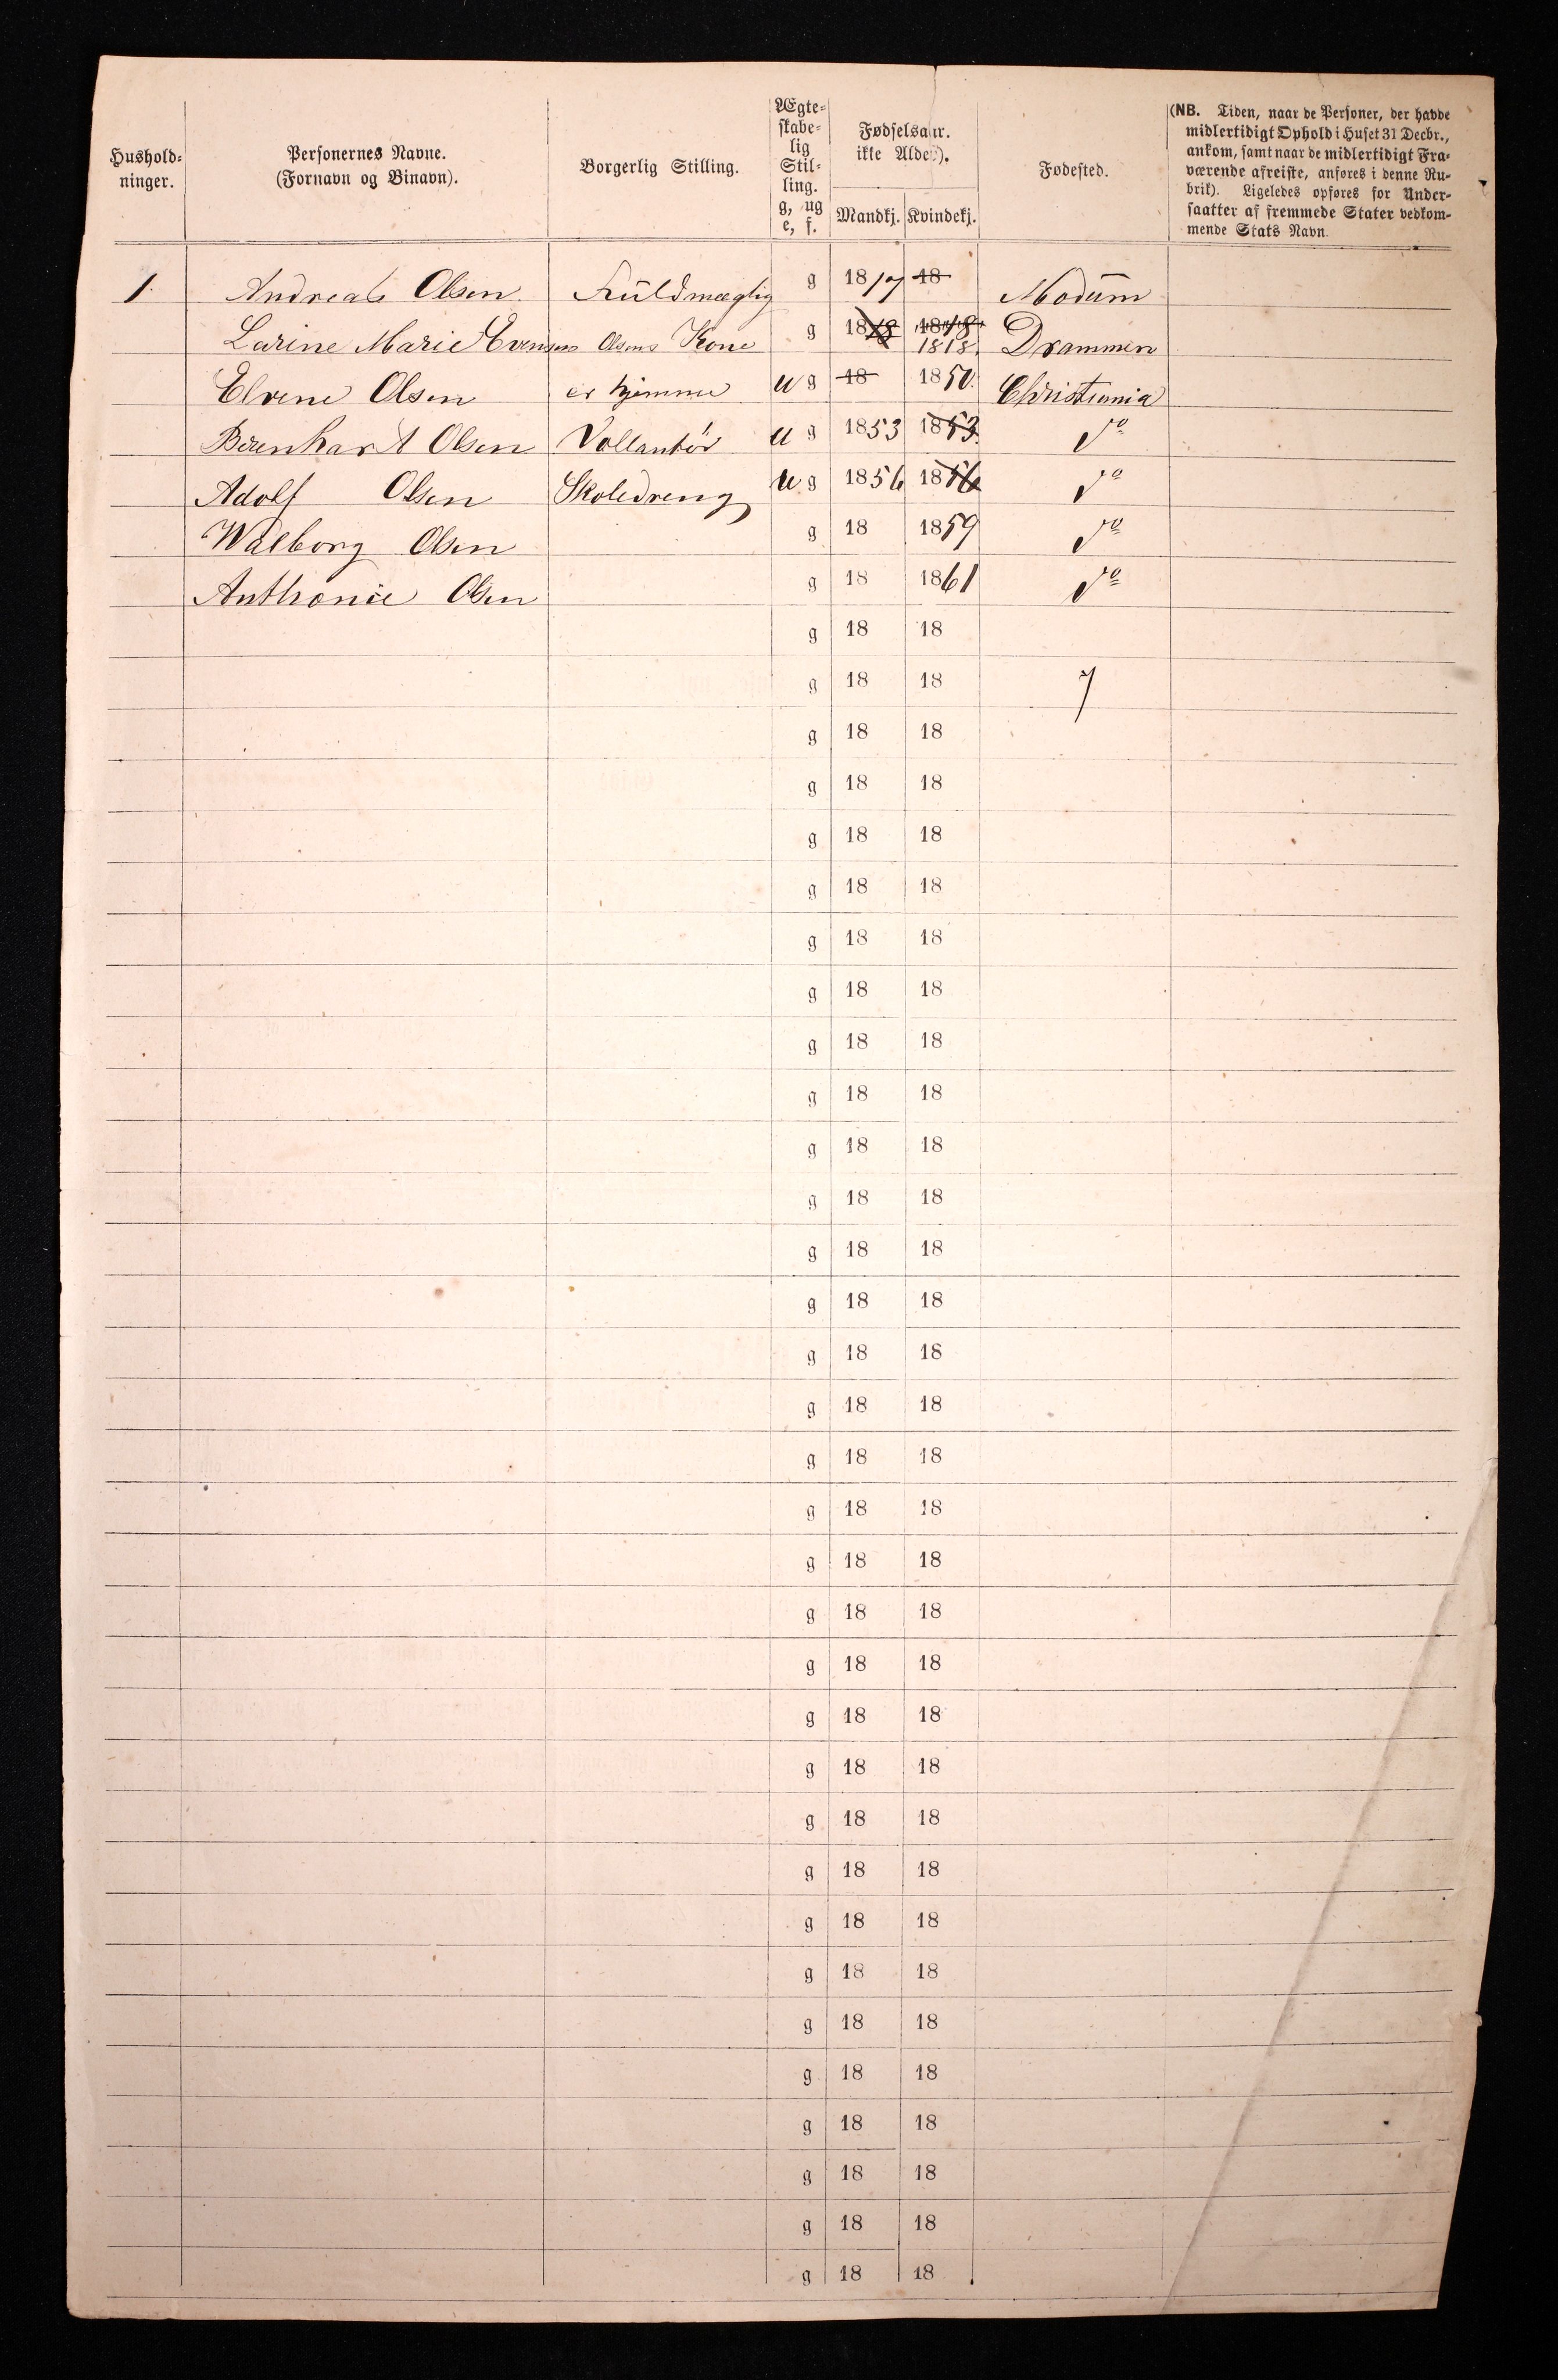 Hushold-
ninger.
Personernes Navne.
(Fornavn og Binavn).
Borgerlig Stilling.
Ægte-
skabe-
lig
Stil-
ling.
g, ug
e, f.
Fødselsaar.
ikke Alder).
Mandkj. Kvindekj.
Fødested.
(NB. Tiden, naar de Personer, der havde
midlertidigt Ophold i Huset 31 Decbr.,
ankom, samt naar de midlertidigt Fra-
værende afreiste, anføres i denne Ru-
brik). Ligeledes opføres for Under-
saatter af fremmede Stater vedkom-
mende Stats Navn.
1. Andreas Olsen Fuldmægtig g 1817 18 Modum
Larine Marie Evensen Olsens Kone g 1818 1848 1818. Drammen
Elvene Olsen er hjemme u g 18 1850. Christiania
Bernhart Olsen Vollantör u g 1853 1853. do
Adolf Olsen Skoledreng u g 1856 1856 do
Walborg Olsen g 18 1859 do
Anthonie Olsen g 18 1861 do
g 18 18
g 18 18 7
g 18 18
g 18 18
g 18 18
g 18 18
g 18 18
g 18 18
g 18 18
g 18 18
g 18 18
g 18 18
g 18 18
g 18 18
g 18 18
g 18 18
g 18 18
g 18 18
g 18 18
g 18 18
g 18 18
g 18 18
g 18 18
g 18 18
g 18 18
g 18 18
g 18 18
g 18 18
g 18 18
g 18 18
g 18 18
g 18 18
g 18 18